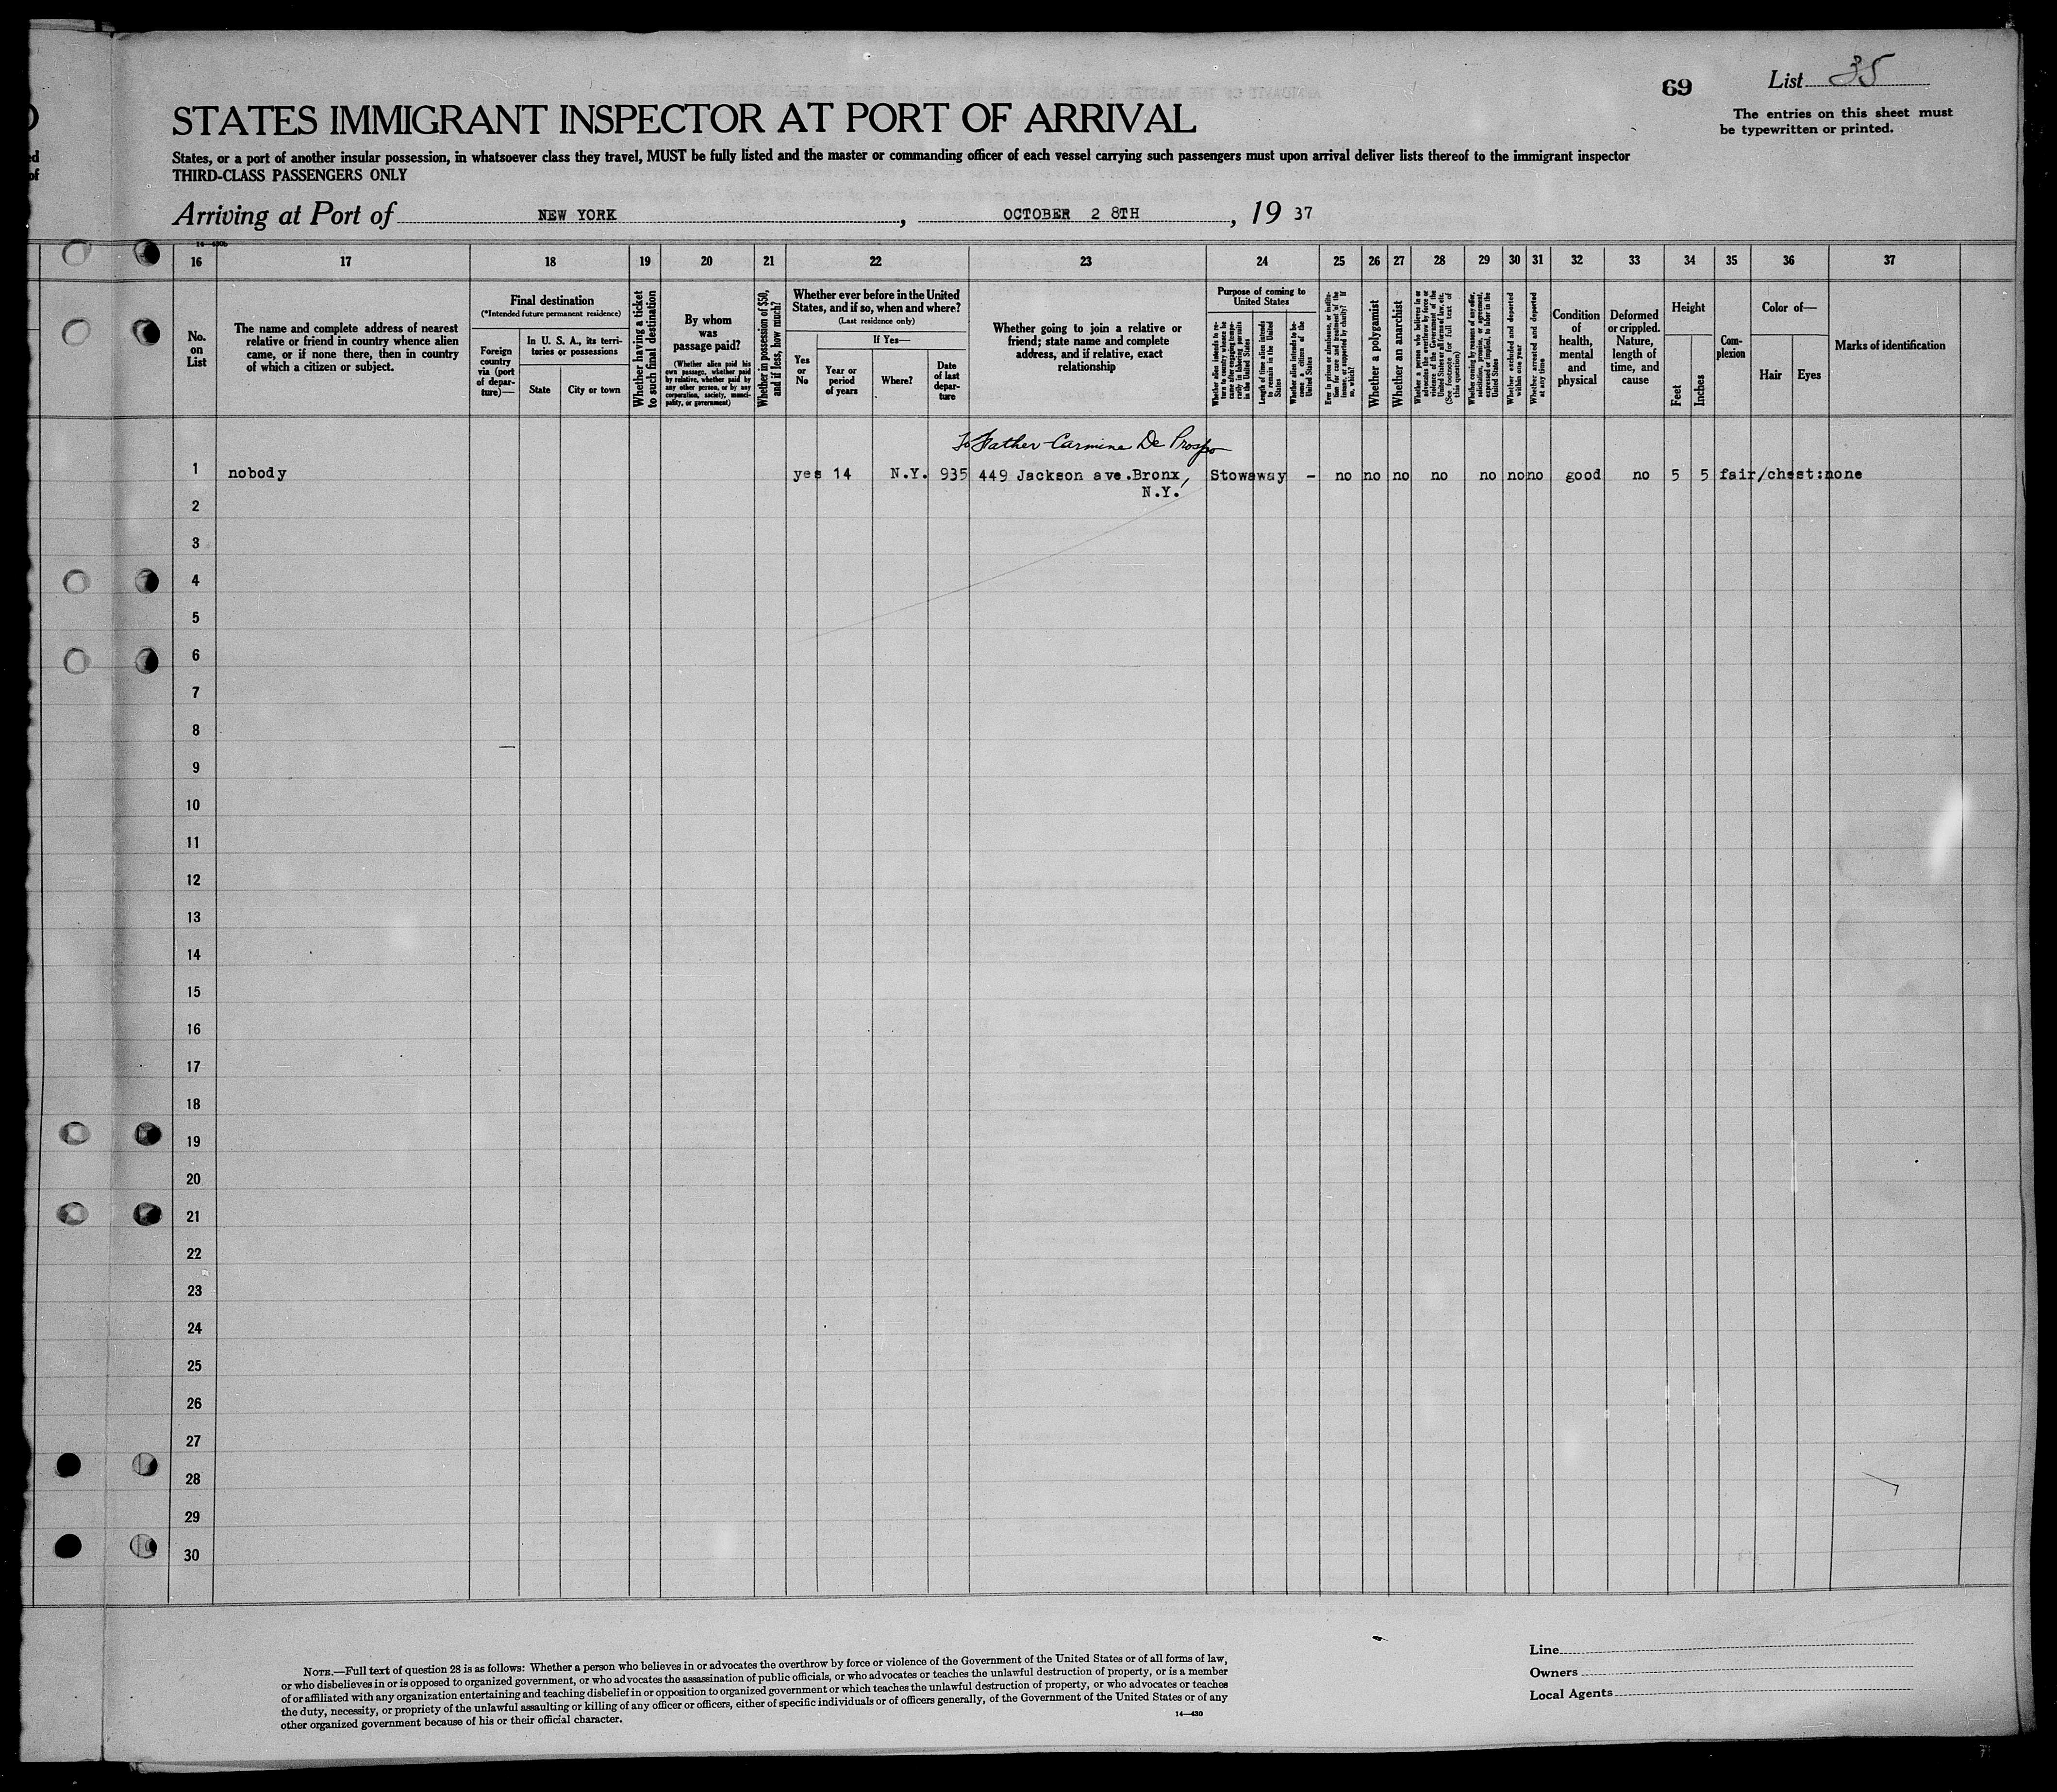 69 List 35
STATES IMMIGRANT INSPECTOR AT PORT OF ARRIVAL
The entries on this sheet must
be typewritten or printed.
States, or a port of another insular possession, in whatsoever class they travel, MUST be fully listed and the master or commanding officer of each vessel carrying such passengers must upon arrival deliver lists thereof to the immigrant inspector
THIRD-CLASS PASSENGERS ONLY
Arriving at Port of NEW YORK, OCTOBER 2 8TH, 19 37
16 17 18 19 20 21 22 23 24 25 26 27 28 29 30 31 32 33 34 35 36 37
No.
on
List
The name and complete address of nearest
relative or friend in country whence alien
came, or if none there, then in country
of which a citizen or subject.
Final destination
(*Intended future permanent residence)
Foreign
country
via (port
of depar-
ture)—
In U. S. A., its terri-
tories or possessions
State
City or town
Whether having a ticket
to such final destination
By whom
was
passage paid?
(Whether alien paid his
own passage, whether paid
by relative, whether paid by
any other person, or by any
corporation, society, munici-
pality, or government)
Whether in possession of $50,
and if less, how much?
Whether ever before in the United
States, and if so, when and where?
(Last residence only)
Yes
or
No
If Yes—
Year or
period
of years
Where?
Date
of last
depar-
ture
Whether going to join a relative or
friend; state name and complete
address, and if relative, exact
relationship
Purpose of coming to
United States
Length of time alien intends
to remain in the United
States
Whether alien intends to be-
come a citizen of the
United States
Whether a polygamist
Whether an anarchist
Whether excluded and deported
within one year
Whether arrested and deported
at any time
Condition
of
health,
mental
and
physical
Deformed
or crippled.
Nature,
length of
time, and
cause
Height
Feet
Inches
Com-
plexion
Color of—
Hair
Eyes
Marks of identification
To Father-Carmine De Prospo
1 nobody yes 14 N.Y. 935 449 Jackson ave.Bronx, Stowaway - no no no no no no no good no 5 5 fair/chest:none
N.Y.
2
3
4
5
6
7
8
9
10
11
12
13
14
15
16
17
18
19
20
21
22
23
24
25
26
27
28
29
30
NOTE.—Full text of question 28 is as follows: Whether a person who believes in or advocates the overthrow by force or violence of the Government of the United States or of all forms of law,
or who disbelieves in or is opposed to organized government, or who advocates the assassination of public officials, or who advocates or teaches the unlawful destruction of property, or is a member
of or affiliated with any organization entertaining and teaching disbelief in or opposition to organized government or which teaches the unlawful destruction of property, or who advocates or teaches
the duty, necessity, or propriety of the unlawful assaulting or killing of any officer or officers, either of specific individuals or of officers generally, of the Government of the United States or of any
other organized government because of his or their official character.
14—430
Line
Owners
Local Agents